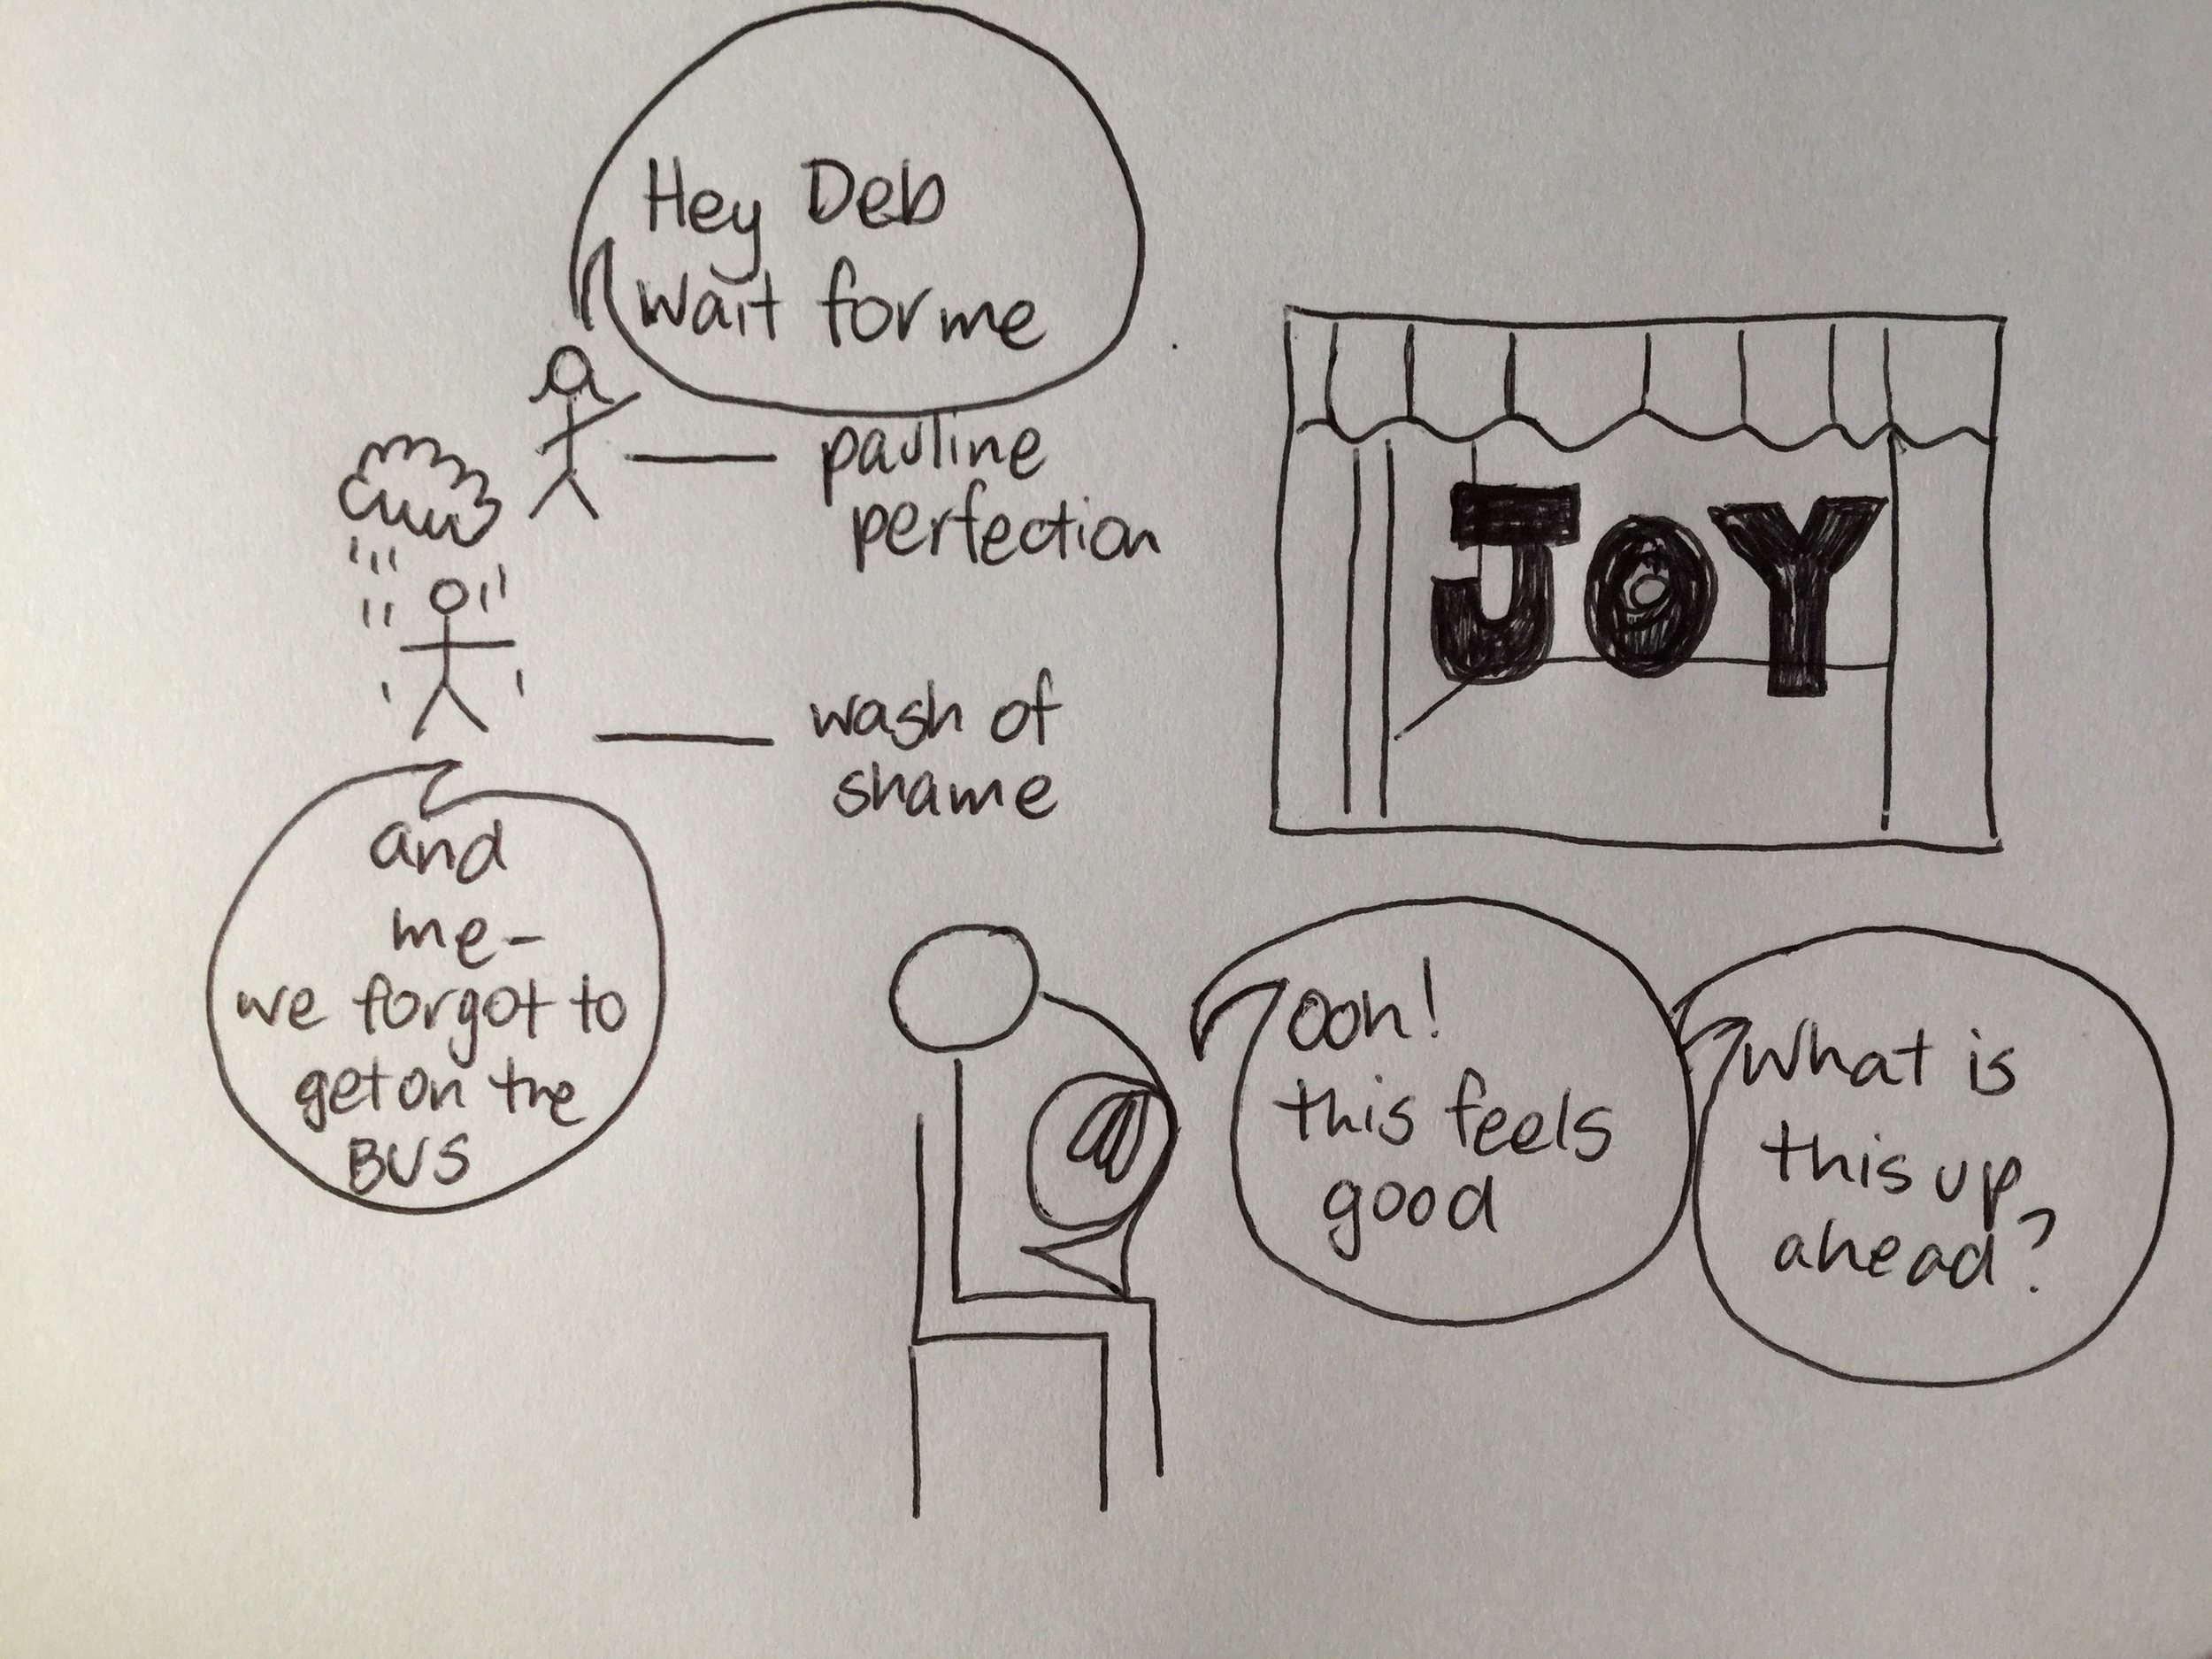 Hey Deb
wait for me
pauline
perfection
JOY
wash of
shame
and
me-
we forgot to
get on the
BUS
ooh!
this feels
good
What is
this up
ahead?